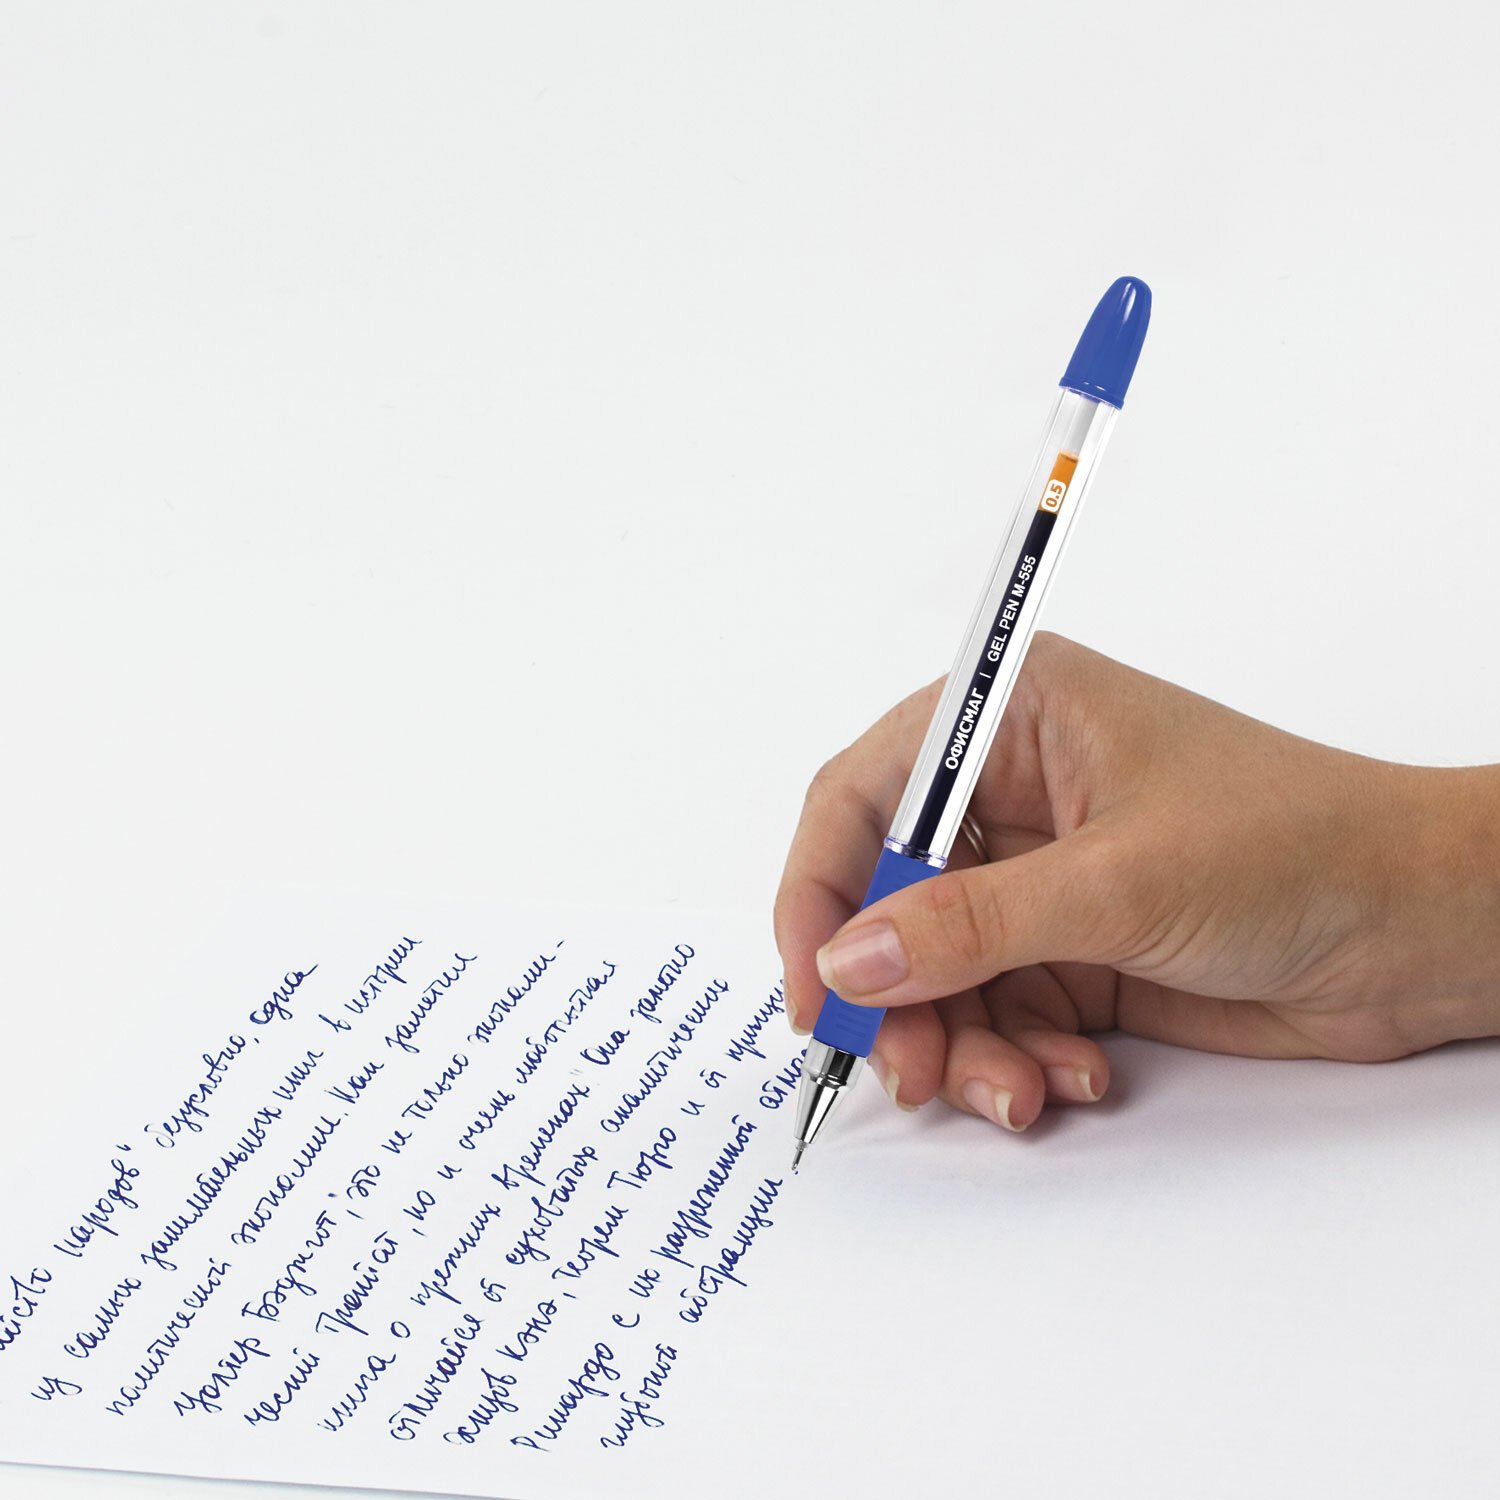 0.5
ОФИСМАГ | GEL PEN M-555
народов" безусловно, одна
из самых занимательных книг в истории
политической экономии. Как заметил
Уолтер Бэджгот, "это не только экономи-
ческий трактат, но и очень любопытная
книга о прежних временах." Она заметно
отличается от суховатых аналитических
эссе Кэнэ, теорем Тюрго и от
Рикардо с их разреженной
глубокой абстракции